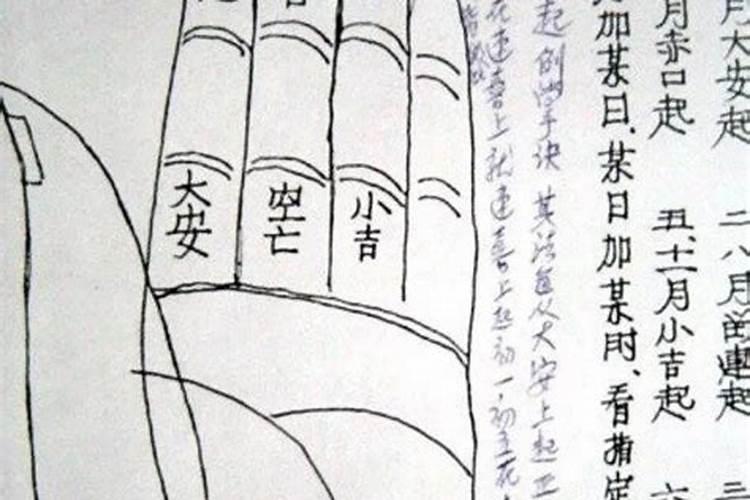 月大安起 二八月留連起 三
月赤口起 五、十一月小吉起 六
加某日、某日加某时、看指定
起例掐手决 其法每从大安上起正
在速喜上就速喜上起初一·初五在
大安
空亡
小吉